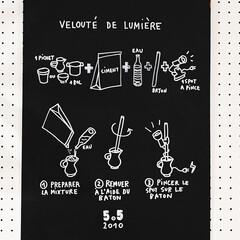 VELOUTÉ DE LUMIÈRE
1 PICHET
OU
OU
1 BOL
+
CIMENT
+
EAU
+
BATON
+
1 SPOT
A PINCE
EAU
1 PREPARER
LA MIXTURE
2 REMUER
A L'AIDE DU
BATON
3 PINCER LE
SPOT SUR LE
BATON
5.5
2010